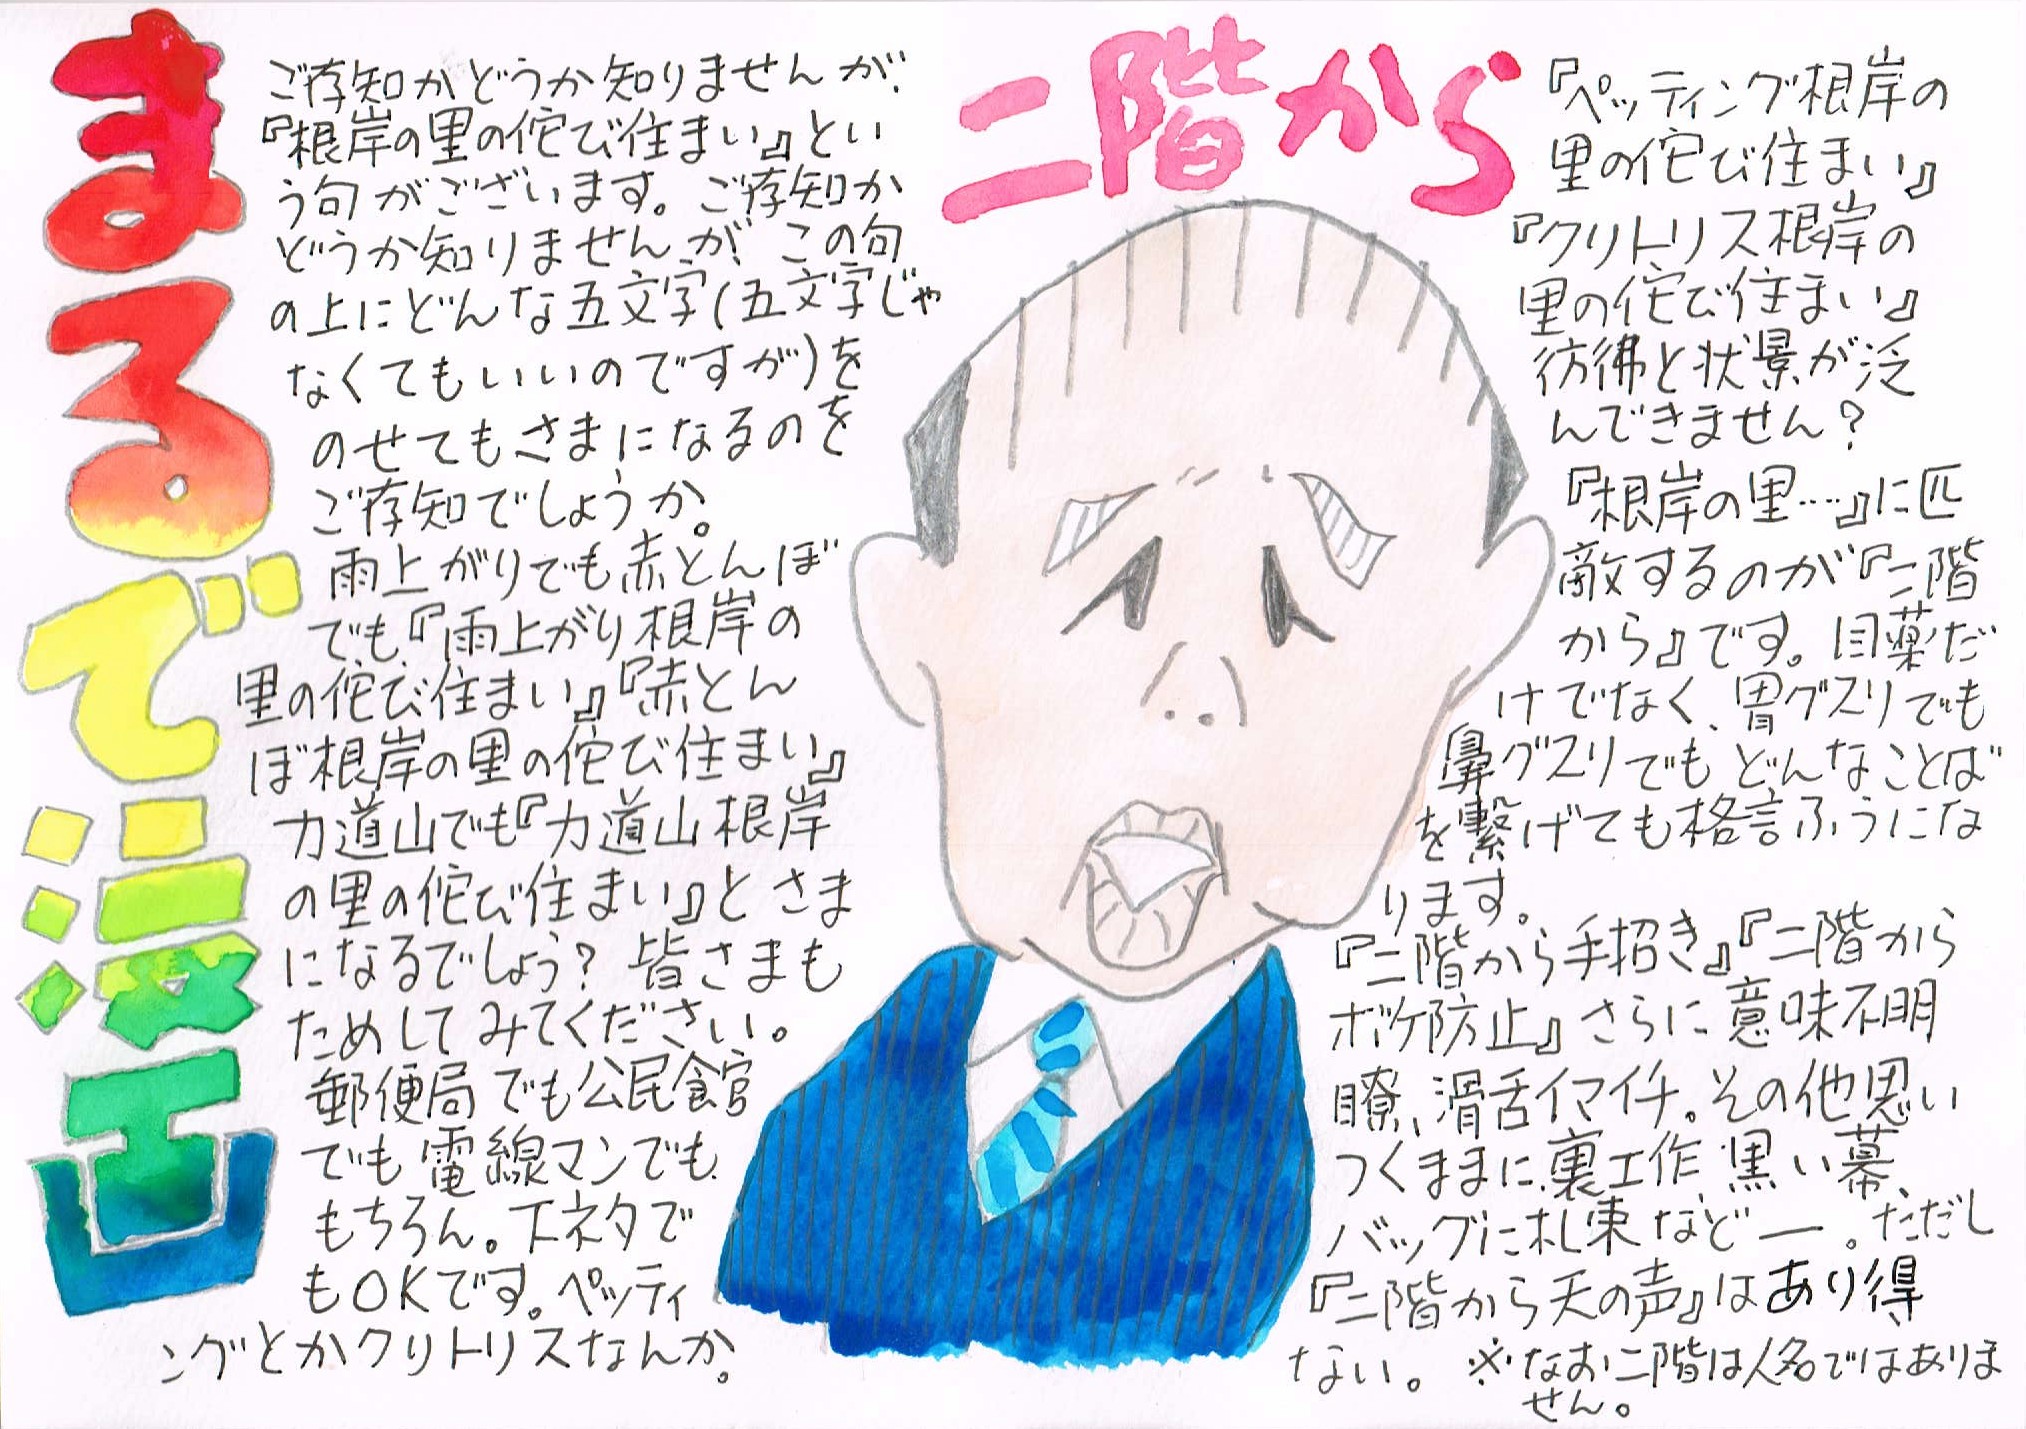 まるで漫画
ご存知かどうか知りませんが
『根岸の里の侘び住まい』とい
う句がございます。ご存知か
どうか知りませんが この句
の上にどんな五文字(五文字じゃ
なくてもいいのですが)を
のせてもさまになるのを
ご存知でしょうか。
雨上がりでも赤とんぼ
でも『雨上がり根岸の
里の侘び住まい』『赤とん
ぼ根岸の里の侘び住まい』
力道山でも『力道山根岸
の里の侘び住まい』とさま
になるでしょう? 皆さまも
ためしてみてください。
郵便局でも公民館
でも電線マンでも
もちろん。下ネタで
もOKです。ペッティ
ングとかクリトリスなんか。
二階から
『ペッティング根岸の
里の侘び住まい』
『クリトリス根岸の
里の侘び住まい』
彷彿と状景が泛
んできません?
『根岸の里‥‥』に匹
敵するのが『二階
から』です。目薬だ
けでなく、胃グスリでも
鼻グスリでもどんなことば
を繋げても格言ふうにな
ります。
『二階から手招き』『二階から
ボケ防止』さらに意味不明
瞭、滑舌イマイチ。その他思い
つくままに裏工作 黒い幕
バッグに札束など―。ただし
『二階から天の声』はあり得
ない。 ※なお二階は人名ではありま
せん。